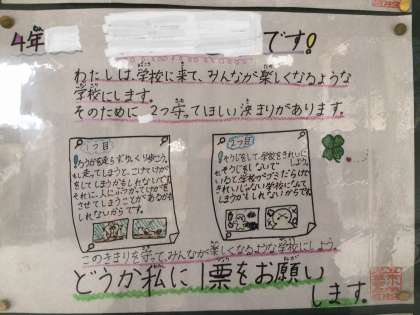 4年
です!
わたしは、学校に来て、みんなが楽しくなるような
学校にします。
そのために2つ守ってほしい決まりがあります。
1つ目
ろうかを走らず、右
走ってしまうと、こけてけが
をしてしまうかもしれないです。
それに、人にぶつかってけがを
させてしまうことがあるかも
しれないからです。
2つ目
そうじをして学校をきれいに
しよう。
そうじをしないで
いると学校がゴミだらけで
きれいじゃない学校になって
しまうかもしれないからです。
このきまりを守って、みんなが楽しくなるような学校にしよう。
どうか私に1票をお願い
します。